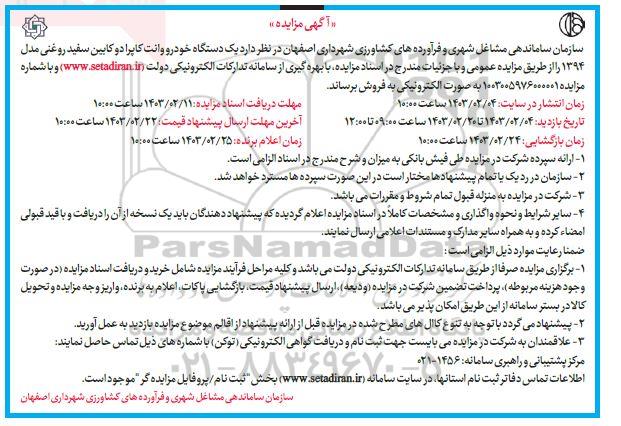 « آگهی مزایده »
سازمان ساماندهی مشاغل شهری و فرآورده های کشاورزی شهرداری اصفهان در نظر دارد یک دستگاه خودرو وانت کاپرا دو کابین سفید روغنی مدل
۱۳۹۴ را از طریق مزایده عمومی و با جزئیات مندرج در اسناد مزایده، با بهره گیری از سامانه تدارکات الکترونیکی دولت (www.setadiran.ir) و با شماره
مزایده ۱۰۰۳۰۰۵۹۷۶۰۰۰۰۰۱ به صورت الکترونیکی به فروش برساند.
زمان انتشار در سایت: ۱۴۰۳/۰۲/۰۴ ساعت ۱۰:۰۰ مهلت دریافت اسناد مزایده: ۱۴۰۳/۰۲/۱۱ ساعت ۱۰:۰۰
تاریخ بازدید: ۱۴۰۳/۰۲/۰۴ تا ۱۴۰۳/۰۲/۲۰ ساعت ۰۹:۰۰ تا ۱۲:۰۰ آخرین مهلت ارسال پیشنهاد قیمت: ۱۴۰۳/۰۲/۲۲ ساعت ۱۰:۰۰
زمان بازگشایی: ۱۴۰۳/۰۲/۲۴ ساعت ۱۰:۰۰ زمان اعلام برنده: ۱۴۰۳/۰۲/۲۵ ساعت ۱۰:۰۰
۱- ارائه سپرده شرکت در مزایده طی فیش بانکی به میزان و شرح مندرج در اسناد الزامی است.
۲ - سازمان در رد یک یا تمام پیشنهادها مختار است در این صورت سپرده ها مسترد خواهد شد.
۳ - شرکت در مزایده به منزله قبول تمام شروط و مقررات می باشد.
۴ - سایر شرایط و نحوه واگذاری و مشخصات کاملاً در اسناد مزایده اعلام گردیده که پیشنهاد دهندگان باید یک نسخه از آن را دریافت و با قید قبولی
امضاء کرده و به همراه سایر مدارک و مستندات اعلامی ارسال نمایند.
ضمنا رعایت موارد ذیل الزامی است:
۱ - برگزاری مزایده صرفا از طریق سامانه تدارکات الکترونیکی دولت می باشد و کلیه مراحل فرآیند مزایده شامل خرید و دریافت اسناد مزایده (در صورت
وجود هزینه مربوطه)، پرداخت تضمین شرکت در مزایده (ودیعه)، ارسال پیشنهاد قیمت، بازگشایی پاکات، اعلام به برنده، واریز وجه مزایده و تحویل
کالا در بستر سامانه از این طریق امکان پذیر می باشد.
۲ - پیشنهاد می گردد با توجه به تنوع کاال های مطرح شده در مزایده قبل از ارائه پیشنهاد از اقالم موضوع مزایده بازدید به عمل آورید.
۳ - علاقمندان به شرکت در مزایده می بایست جهت ثبت نام و دریافت گواهی الکترونیکی (توکن) با شماره های ذیل تماس حاصل نمایند:
مرکز پشتیبانی و راهبری سامانه: ۱۴۵۶-۰۲۱
اطلاعات تماس دفاتر ثبت نام استانها، در سایت سامانه (www.setadiran.ir) بخش "ثبت نام/پروفایل مزایده گر" موجود است.
سازمان ساماندهی مشاغل شهری و فرآورده های کشاورزی شهرداری اصفهان
ParsNamadData
۰۲۱-۸۸۳۴۹۶۷۰-۵